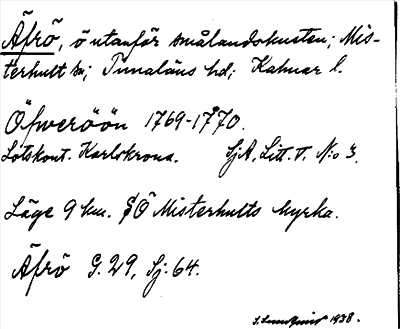 Äfrö, ö utanför smålandskusten; Mis-
terhult sn; Tunaläns hd; Kalmar l.
Öfweröön 1769-1770.
Lotskont. Karlskrona. SjA, Litt. T. N:o 3.
Läge 9 km. SÖ Misterhults kyrka.
Äfrö G. 29, Sj. 64.
S. Lundqvist 1938.